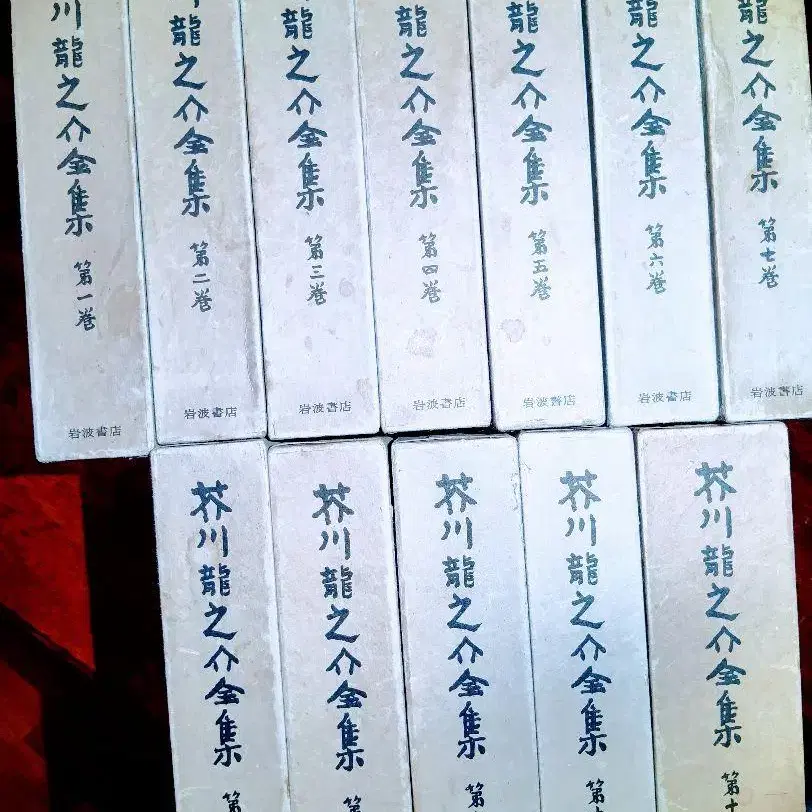 川龍之介全集 第一巻 岩波書店
龍之介全集 第二巻 岩波書店
龍之介全集 第三巻 岩波書店
龍之介全集 第四巻 岩波書店
龍之介全集 第五巻 岩波書店
龍之介全集 第六巻 岩波書店
龍之介全集 第七巻 岩波書店
芥川龍之介全集 第
芥川龍之介全集 第
芥川龍之介全集 第
芥川龍之介全集 第
芥川龍之介全集 第十